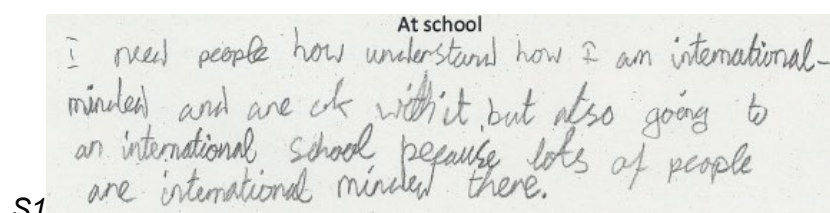 At school
I need people how understand how I am international-
minded and are ok with it but also going to
an international school because lots of people
are international minded there.
S1